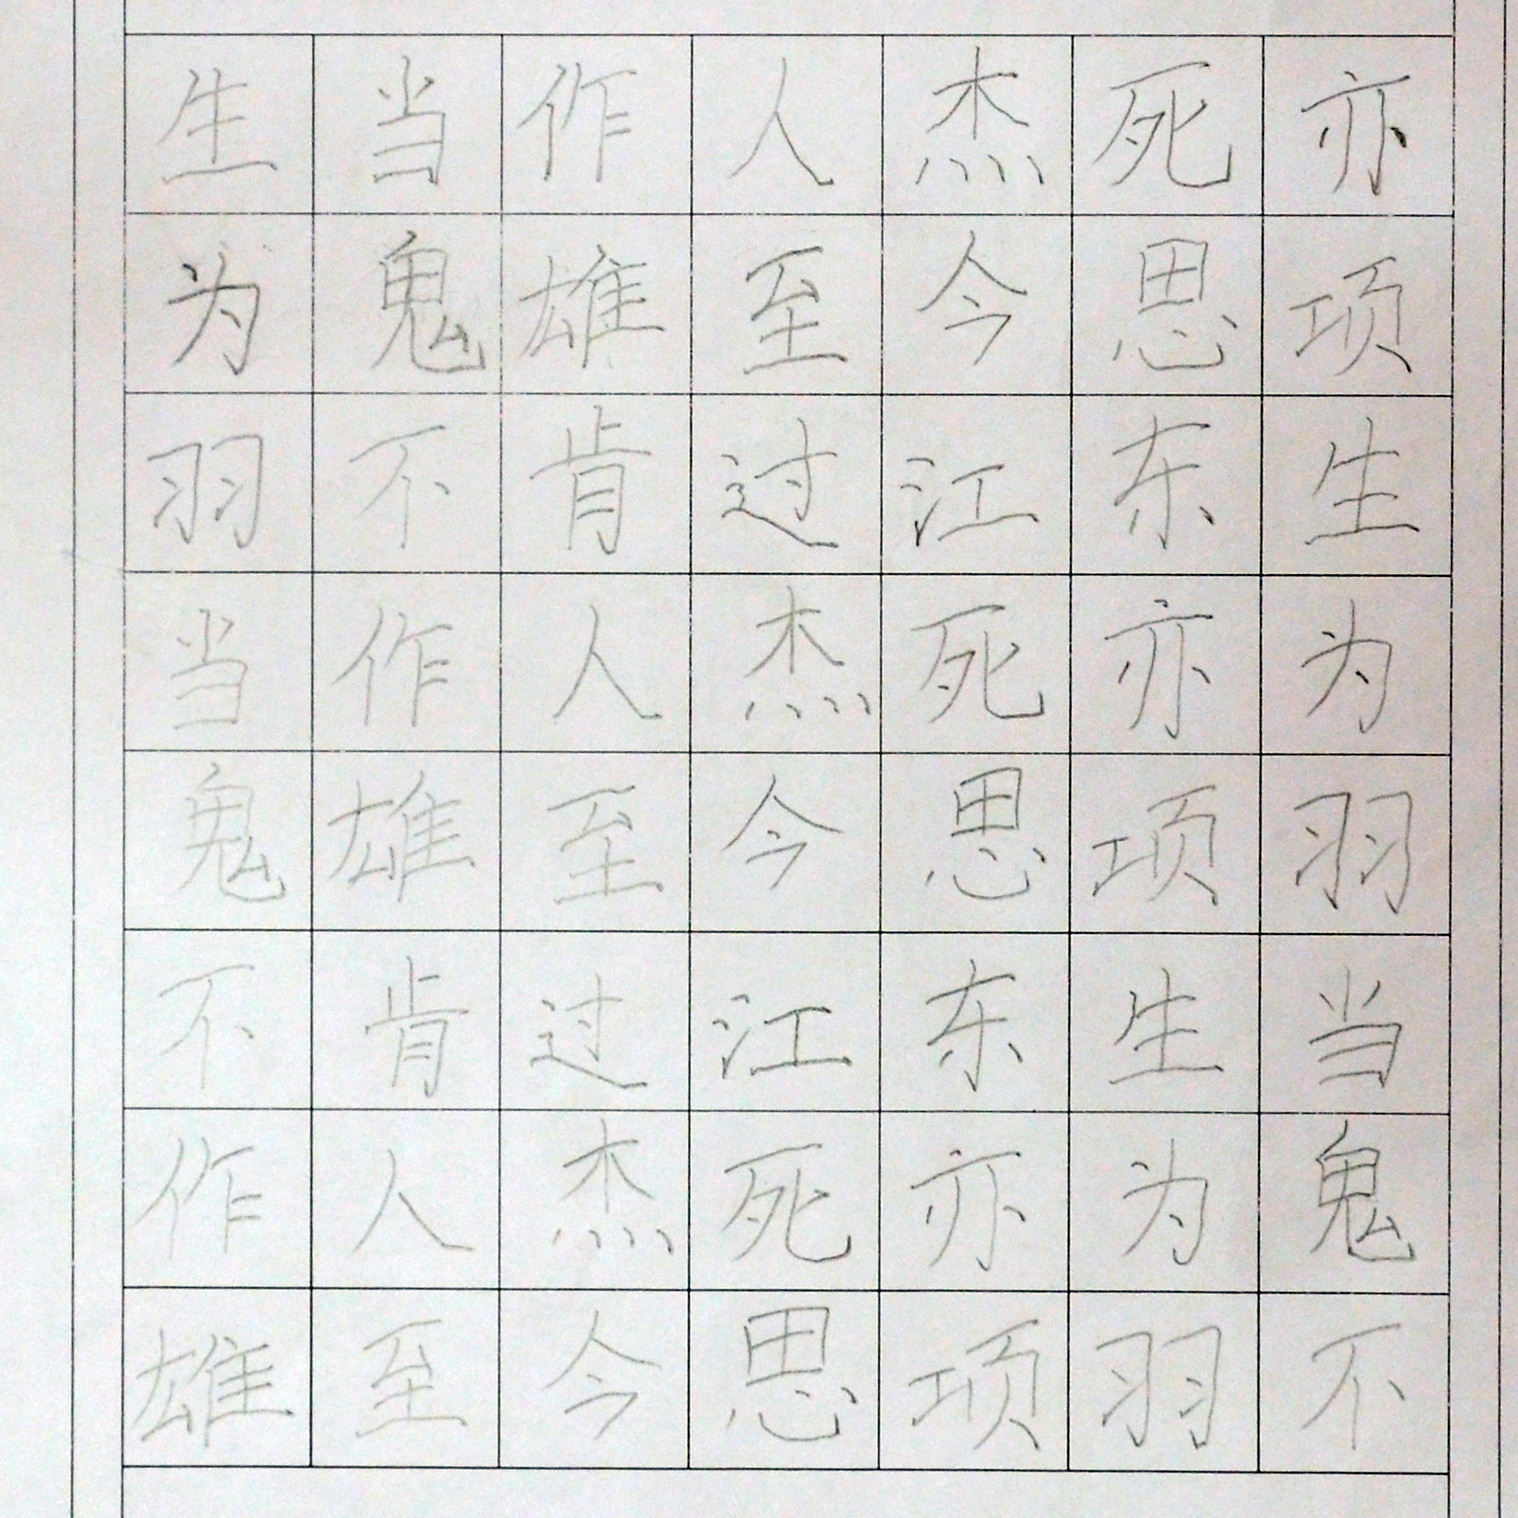 生当作人杰死亦
为鬼雄至今思项
羽不肯过江东生
当作人杰死亦为
鬼雄至今思项羽
不肯过江东生当
作人杰死亦为鬼
雄至今思项羽不